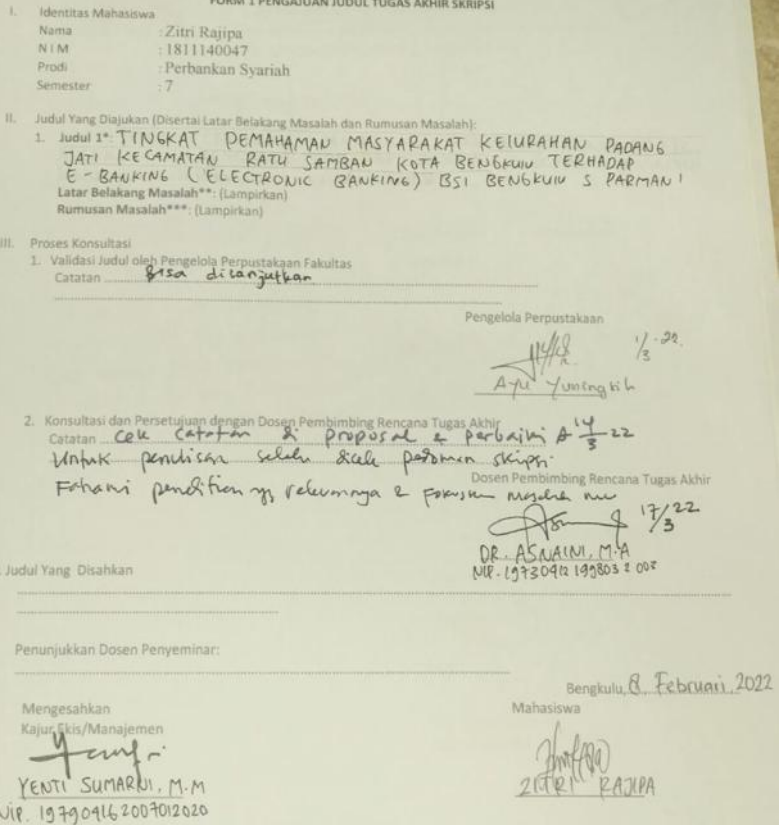 FORM 1 PENGAJUAN JUDUL TUGAS AKHIR SKRIPSI
I. Identitas Mahasiswa
Nama : Zitri Rajipa
N I M : 1811140047
Prodi : Perbankan Syariah
Semester : 7
II. Judul Yang Diajukan (Disertai Latar Belakang Masalah dan Rumusan Masalah):
1. Judul 1*: TINGKAT PEMAHAMAN MASYARAKAT KELURAHAN PADANG
JATI KECAMATAN RATU SAMBAN KOTA BENGKULU TERHADAP
E-BANKING (ELECTRONIC BANKING) BSI BENGKULU S PARMAN 1
Latar Belakang Masalah**: (Lampirkan)
Rumusan Masalah***: (Lampirkan)
III. Proses Konsultasi
1. Validasi Judul oleh Pengelola Perpustakaan Fakultas
Catatan Bisa dilanjutkan
Pengelola Perpustakaan
1/3-22.
Ayu Yuningsih
2. Konsultasi dan Persetujuan dengan Dosen Pembimbing Rencana Tugas Akhir
Catatan Cek Catatan di proposal & perbaiki 14/3 22
Untuk penulisan selalu dicek pedoman skripsi
Dosen Pembimbing Rencana Tugas Akhir
Fahami penelitian yg relevannya & Fokuskan masalah
17/3 22
DR. ASNAINI, M.A
NIP. 19730412 199803 2 003
Judul Yang Disahkan
Penunjukkan Dosen Penyeminar:
Bengkulu, 8 Februari 2022
Mengesahkan
Mahasiswa
Kajur Ekis/Manajemen
YENTI SUMARNI, M.M
ZITRI RAJIPA
NIP. 197904162007012020